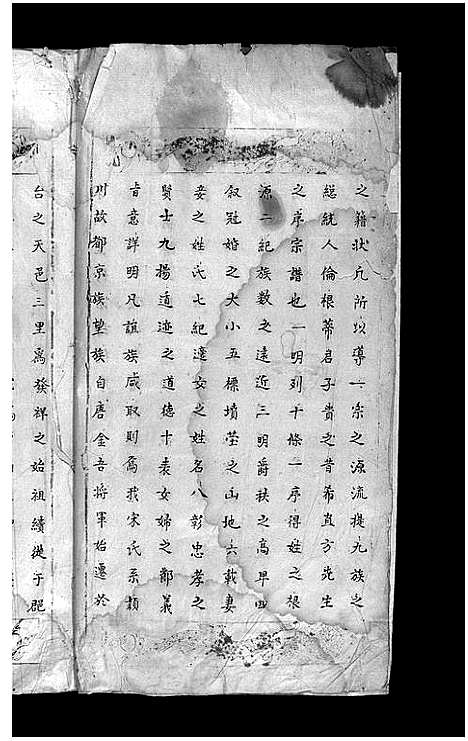 之籍狀凡所以導一宗之源流提九族之
總統人倫根蒂君子貴之昔希直方先生
之序宗譜也一明列十條一序得姓之根
源二紀族數之遠近三明爵秩之高卑四
叙冠婚之大小五標墳塋之山地六載妻
妾之姓氏七紀適女之姓名八彰忠孝之
賢士九揚道迹之道德十表女婦之節義
旨意詳明凡譜族咸取則焉我宋氏系頴
川故都京族望族自唐金吾將軍始遷於
台之天邑三里為發祥之始祖續徙于邑